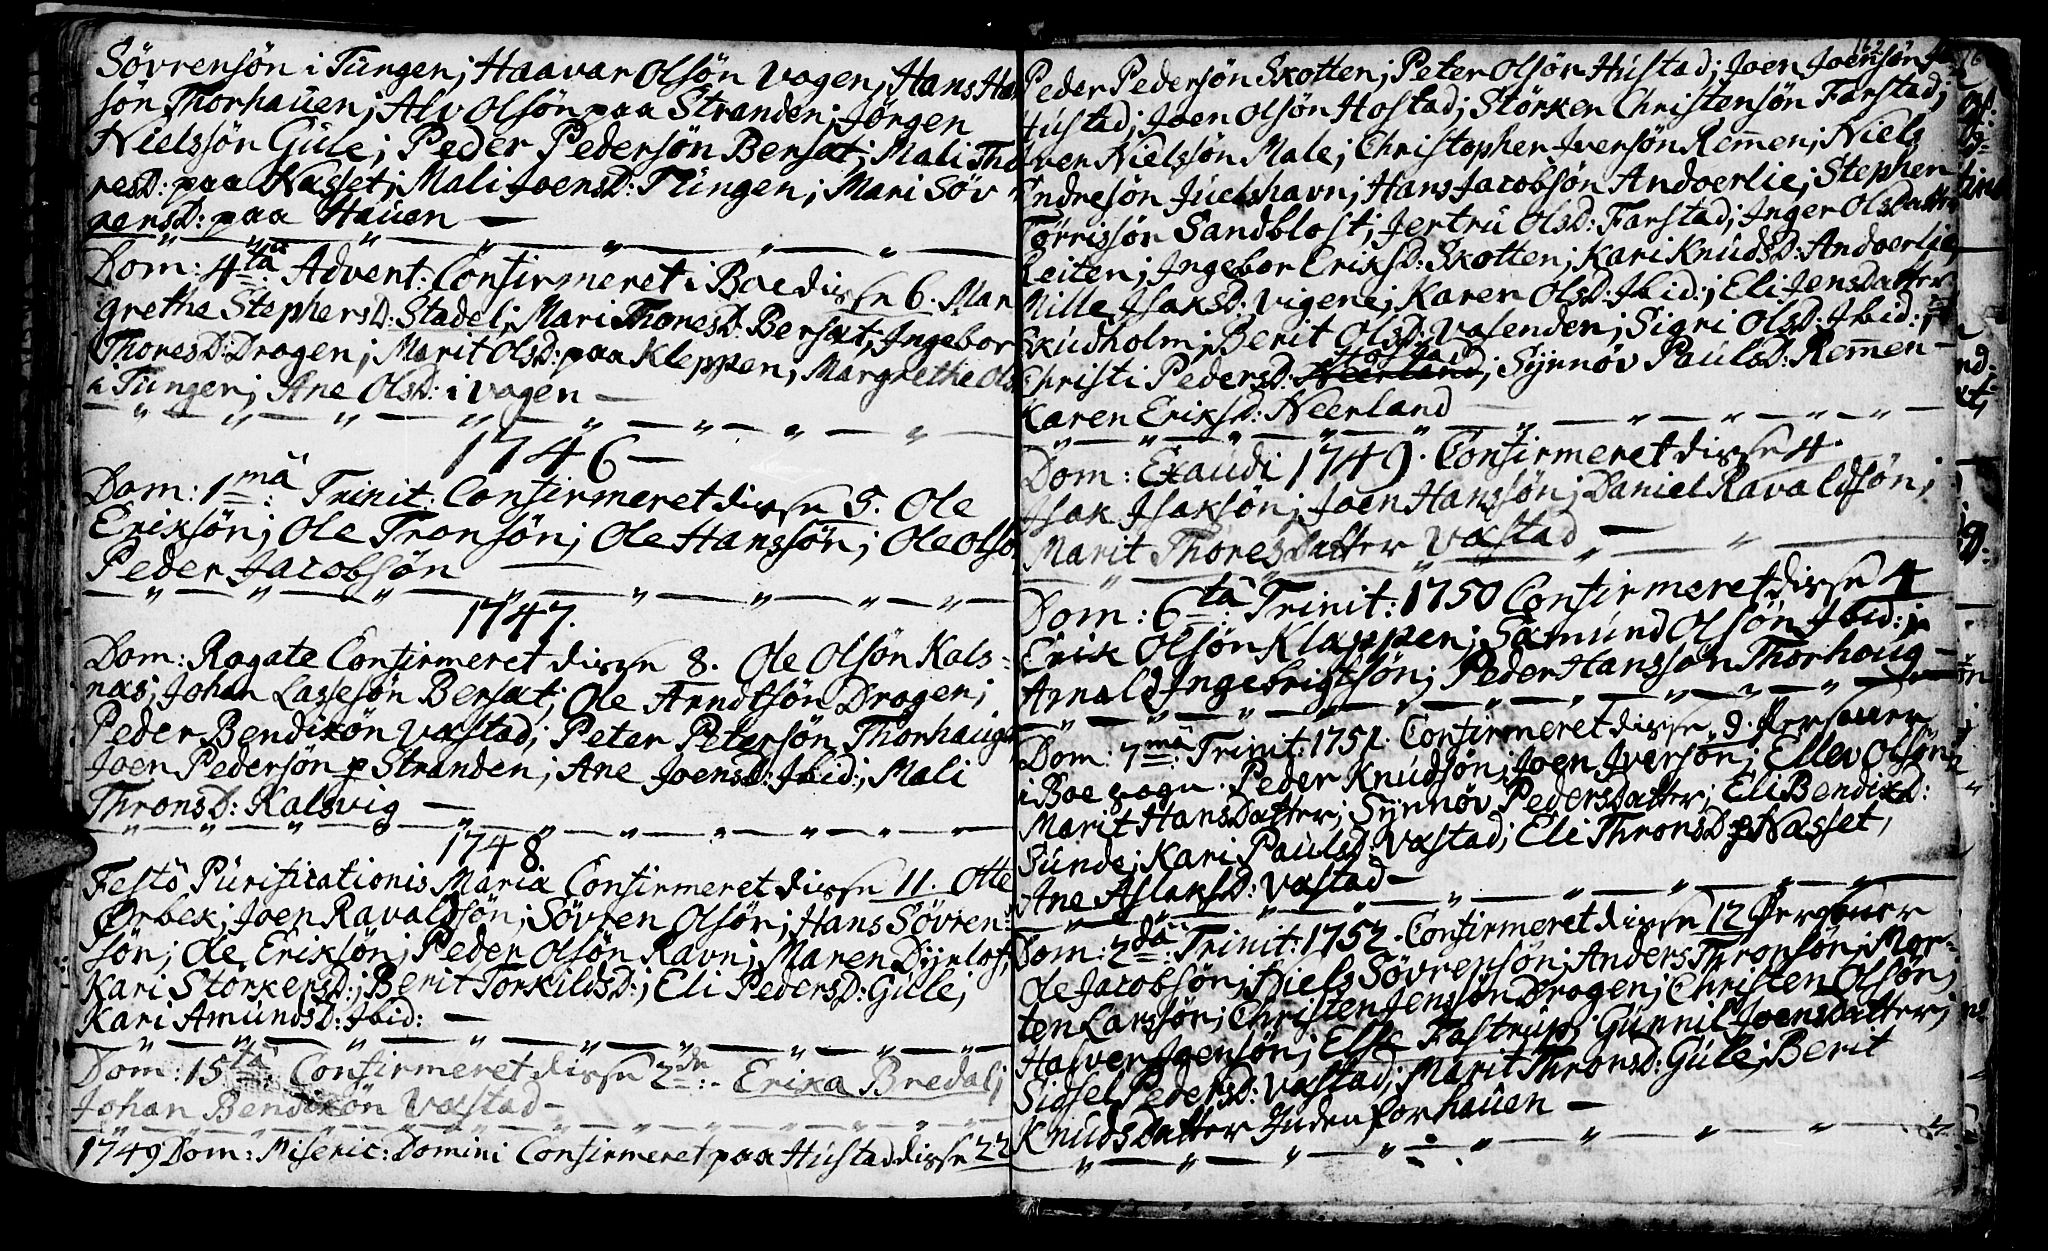 Sövrensön i Tüngen; Haavar Olsön Vagen; Hans Han
sön Thorhaüen; Alv Olsön paa Stranden; Jörgen
Nielssön Güle; Peder Pedersön Bersæt; Mali Tho
resD: paa Næsset; Mali JoensD: Tüngen; Mari Söv
rensD: paa Haüen —
Dom: 4ta Advent: Confirmeret i Boe disse 6. Mar
grethe StephensD: Stadel; Mari ThoresD: Bersæt; Ingebor
ThoresD: Dragen; Marit OlsD: paa Kleppen; Margrethe Ols
i Tüngen; Ane OlsD: i Vagen —
1746 —
Dom: 1ma Trinit: Confirmeret disse 5. Ole
Eriksön; Ole Tronsön; Ole Hanssön; Ole Olsö
Peder Jacobsön —
1747.
Dom: Rogate Confirmeret disse 8. Ole Olsön Kals-
næs; Johan Lassesön Bersæt; Ole Arndtsön Dragen;
Peder Bendixön Væstad; Peter Petersön Thorhaüg
Joen Pedersön p Stranden; Ane JoensD: Ibid; Mali
ThronsD: Kalsvig —
1748
Festo Pürificationis Mariæ Confirmeret disse 11. Otte
Ørbek; Joen Ravaldsön; Sövren Olsön; Hans Sövren-
sön; Ole Eriksön; Peder Olsön Ravn; Maren Dÿrlof;
Kari StörkersD:; Berit TorkildsD:; Eli PedersD: Güle;
Kari AmündsD: Ibid: —
Dom: 15ta Confirmeret disse 2de: - Erika Bredal;
Johan Bendixön Væstad —
1749 Dom: Miseric: Domini Confirmeret paa Hüstad disse 22
162
Peder Pedersön Skotten; Peter Olsön Hüstad; Joen Joensön
Hüstad; Joen Olsön Hostad; Störker Christensön Farstad;
Iver Nielssön Male; Christopher Iversön Remen; Niels
Endresön Jüelshavn; Hans Jacobsön Andoerlie; Stephen
Törrissön Sandblost; Jertrü OlsD: Farstad; Inger OlsDatter
Reiten; Ingebor EriksD: Skotten; Kari KnüdsD: Andoerlie
Mille IsaksD: Vigene; Karen OlsD: Ibid:; Eli JensDatter
Sküdholm; Berit OlsD: Vasenden; Sigri OlsD: Ibid:;
Hostad
Christi PedersD: Neerland; Sÿnnöv PaülsD: Remen —
Karen EriksD: Neerland
Dom: Exaüdi 1749. Confirmeret disse 4.
Isak Isaksön; Joen Hanssön; Daniel Ravaldsön;
Marit ThoresDatter Væstad —
Dom: 6ta Trinit: 1750 Confirmeret disse 4
Erik Olsön Klappen; Sæmünd Olsön Ibid:;
Arnald Ingebrigtsön; Peder Hanssön Thorhaüg —
Dom: 7ma Trinit: 1751. Confirmeret disse 9. Personer
i Boe Sogn. Peder Knüdsön; Joen Iversön; Ellev Olsön
Marit HansDatter; Sÿnnöv PedersDatter; Eli BendixD:
Sünde; Kari PaülsD: Væstad; Eli ThronsD p Næsset;
Ane AslaksD: Væstad —
Dom: 2da Trinit: 1752. Confirmeret disse 12 Personer
Ole Jacobsön; Niels Sövrensön; Anders Thronsön; Mor-
ten Larssön; Christen Jenssön Dragen; Christen Olsön;
Halver Joensön; Else Fastrüp; Günnil JoensDatter;
Sidsel PedersD: Væstad; Marit ThronsD: Güle; Berit
KnüdsDatter Inden for haüen —